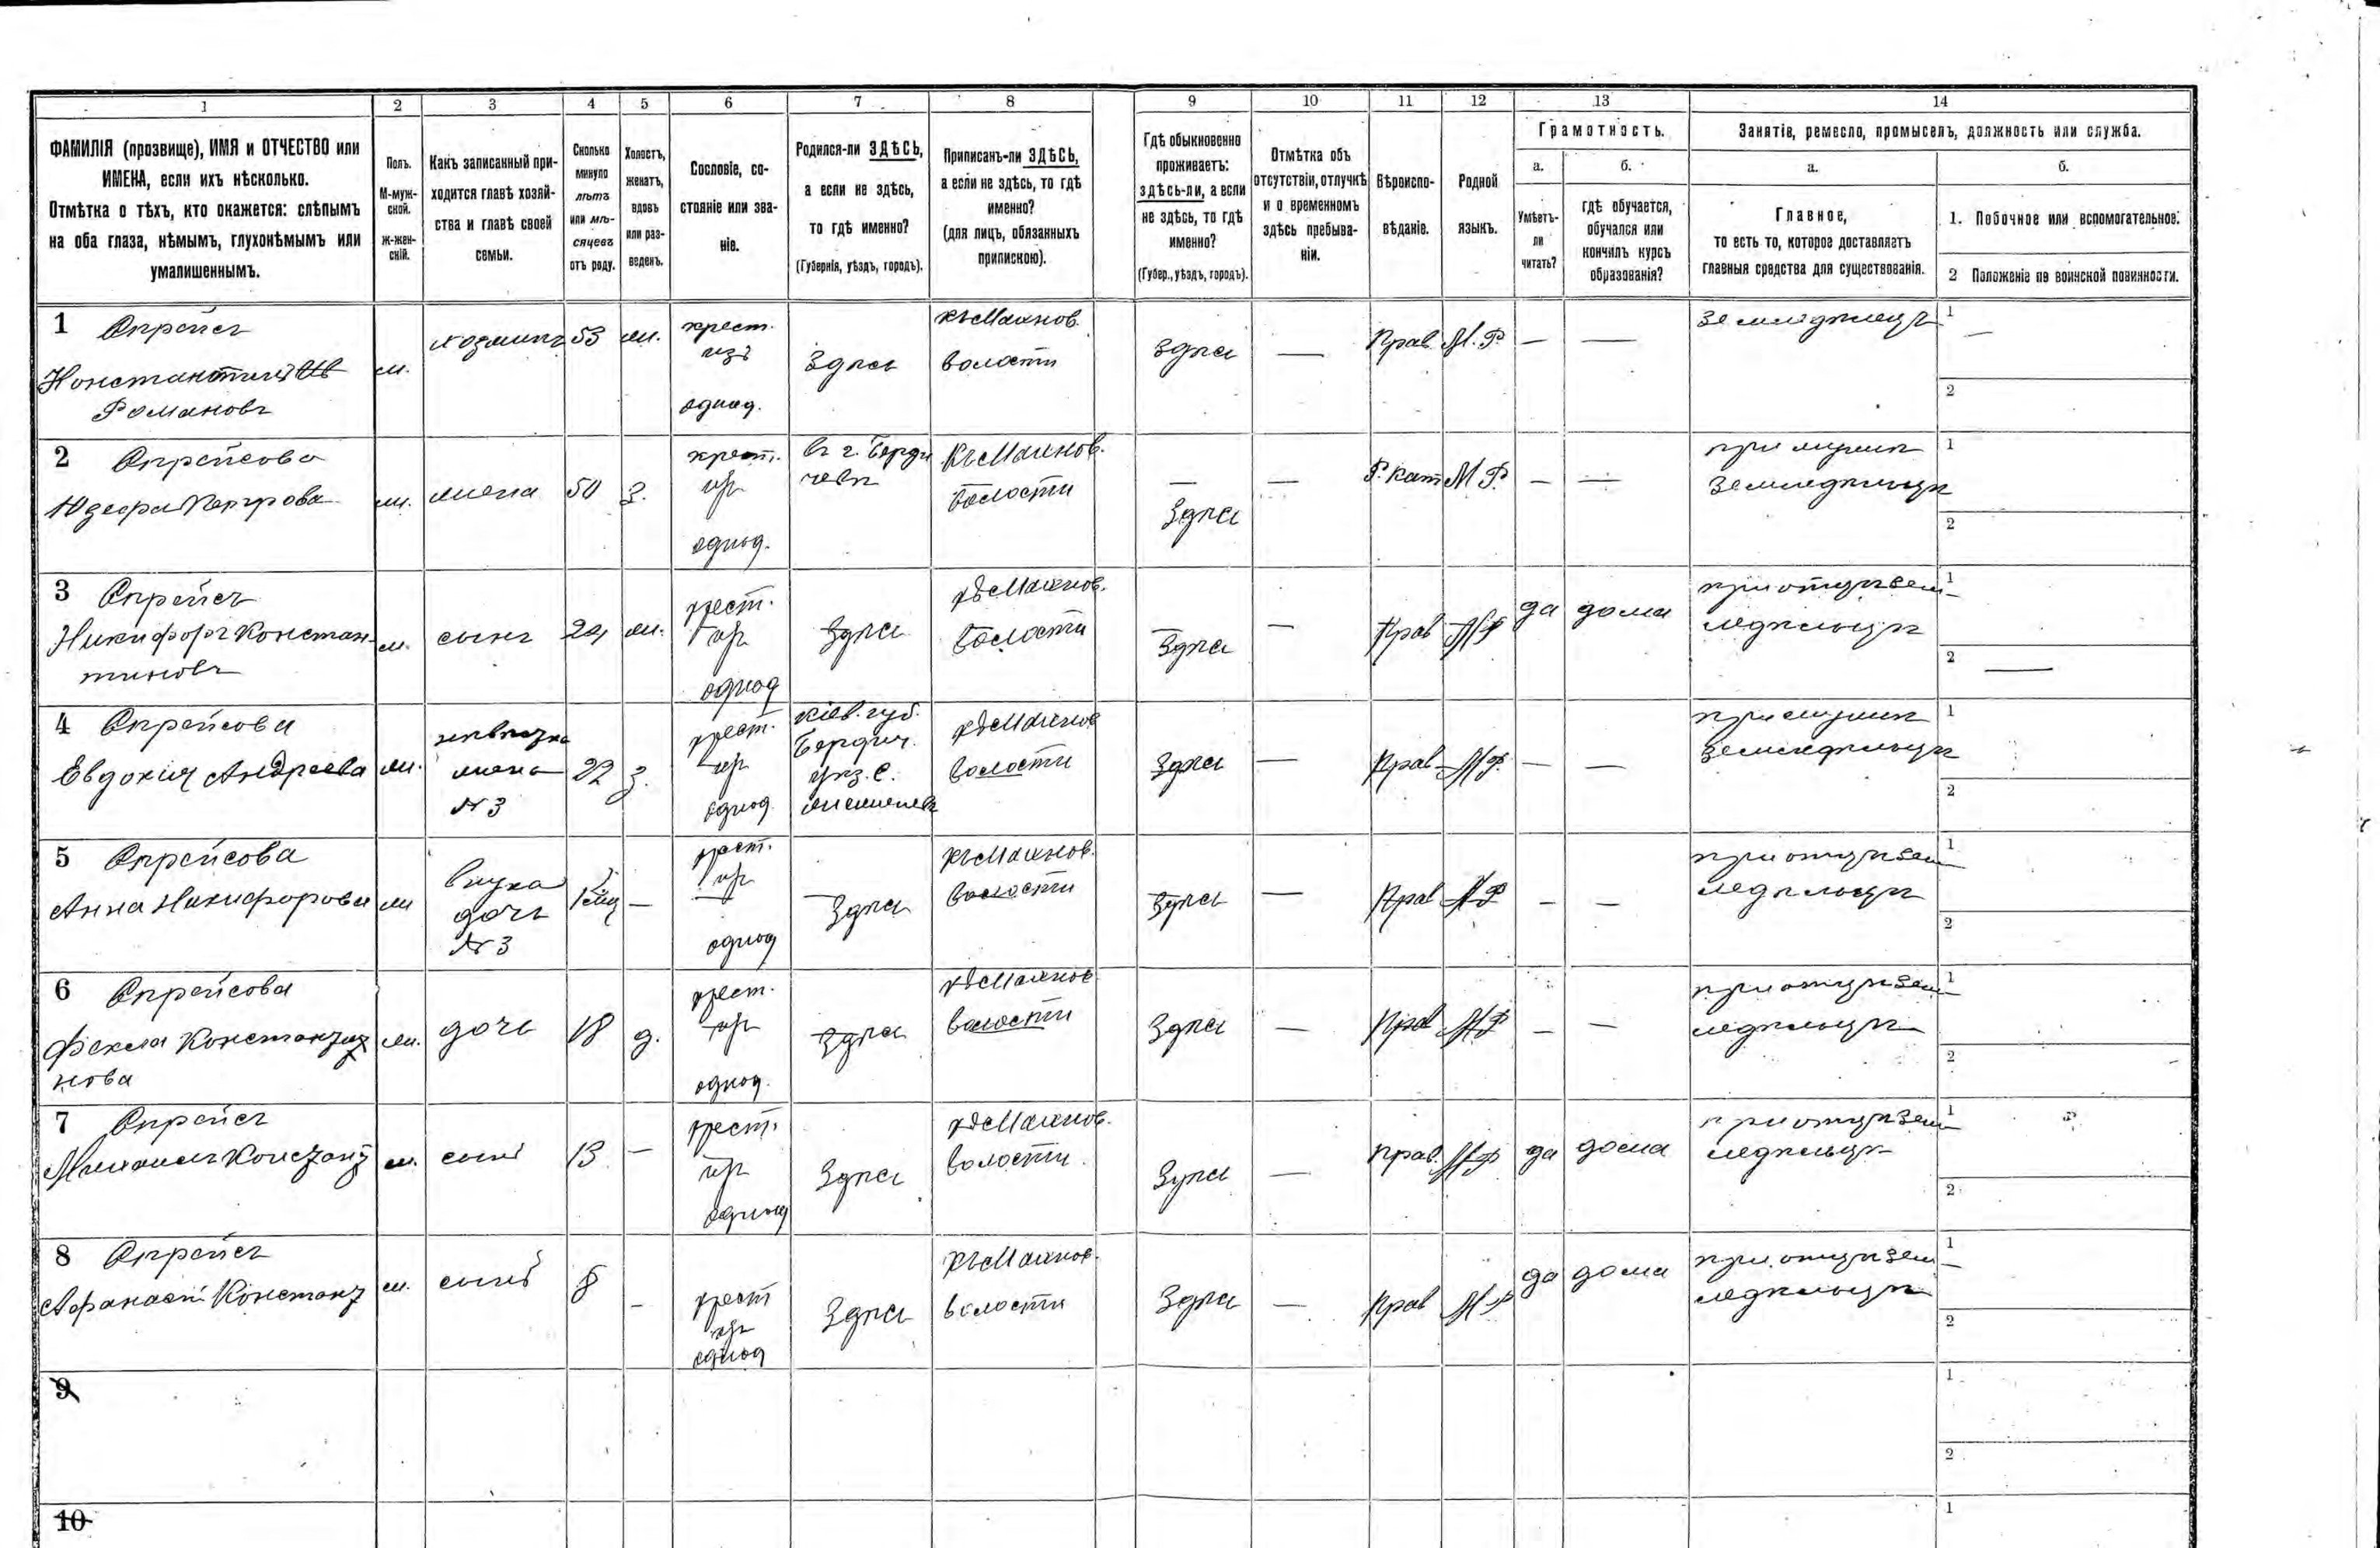 1 2 3 4 5 6 7 8 9 10 11 12 13 14
ФАМИЛІЯ (прозвище), ИМЯ и ОТЧЕСТВО или
ИМЕНА, если ихъ нѣсколько.
Отмѣтка о тѣхъ, кто окажется: слѣпымъ
на оба глаза, нѣмымъ, глухонѣмымъ или
умалишеннымъ.
Полъ.
М-муж-
ской.
Ж-жен-
скій.
Какъ записанный при-
ходится главѣ хозяй-
ства и главѣ своей
семьи.
Сколько
минуло
лѣтъ
или мѣ-
сяцевъ
отъ роду.
Холостъ,
женатъ,
вдовъ
или раз-
веденъ.
Сословіе, со-
стояніе или зва-
ніе.
Родился-ли ЗДѢСЬ,
а если не здѣсь,
то гдѣ именно?
(Губернія, уѣздъ, городъ).
Приписанъ-ли ЗДѢСЬ,
а если не здѣсь, то гдѣ
именно?
(для лицъ, обязанныхъ
припискою).
Гдѣ обыкновенно
проживаетъ:
здѣсь-ли, а если
не здѣсь, то гдѣ
именно?
(Губер., уѣздъ, городъ).
Отмѣтка объ
отсутствіи, отлучкѣ
и о временномъ
здѣсь пребыва-
ніи.
Вѣроиспо-
вѣданіе.
Родной
языкъ.
Грамотность.
а.
Умѣетъ-
ли
читать?
б.
гдѣ обучается,
обучался или
кончилъ курсъ
образованія?
Занятіе, ремесло, промыселъ, должность или служба.
а.
Главное,
то есть то, которое доставляетъ
главныя средства для существованія.
б.
1. Побочное или вспомогательное.
2 Положеніе по воинской повинности.
1
Константинъ
Романовъ
м.
хозяинъ
53
ж.
крест.
изъ
однод.
Здѣсь
волости
Здѣсь
—
Прав.
М. Р.
—
—
Земледѣлецъ
1
—
2
2
Юзефа Петрова
ж.
жена
50
З.
крест.
изъ
однод.
въ г. Берди
чевѣ
волости
—
Здѣсь
—
Р. Кат
М Р.
—
—
при мужѣ
земледѣльцѣ
1
2
3
Никифоръ Констан-
тиновъ
м.
сынъ
ж.
крест.
изъ
однод
Здѣсь
волости
Здѣсь
—
Прав
М Р
да
дома
при отцѣ зем
ледѣльцѣ
1
2
—
4
Евдокія Андреева
ж.
невѣстка
жена
№ 3
22
З.
крест.
изъ
однод.
Кіев. губ.
Бердич.
уѣз. с.
волости
Здѣсь
—
Прав
М Р.
—
—
при мужѣ
земледѣльцѣ
1
2
5
Анна Никифорова
ж
внука
дочь
№ 3
—
крест.
изъ
однод
Здѣсь
волости
Здѣсь
—
Прав
М Р
—
—
при отцѣ зем
ледѣльцѣ
1
2
6
Фекла Константи
нова
ж.
дочь
18
д.
крест.
изъ
однод.
Здѣсь
волости
Здѣсь
—
Прав
М Р
—
—
при отцѣ зем
ледѣльцѣ
1
2
7
Михаилъ Констант
м.
сынъ
13
—
крест.
изъ
однод
Здѣсь
волости
Здѣсь
—
Прав.
М Р
да
дома
при отцѣ зем
ледѣльцѣ
1
2
8
Афанасій Констант
м.
сынъ
8
—
крест
изъ
однод
Здѣсь
волости
Здѣсь
—
Прав
М Р
да
дома
при отцѣ зем
ледѣльцѣ
1
2
9
1
2
10
1